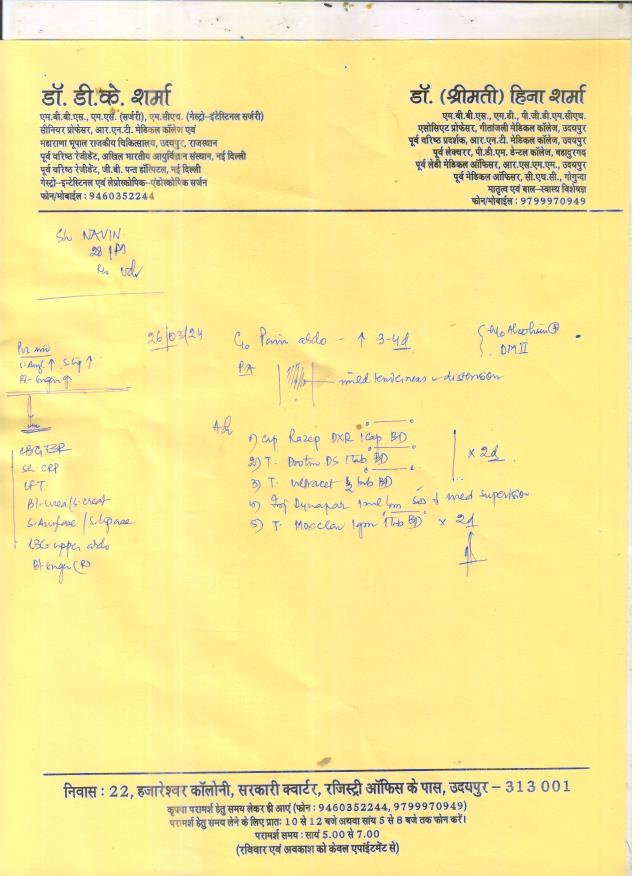 डॉ. डी.के. शर्मा
एम.बी.बी.एस., एम.एस. (सर्जरी), एम.सीएच. (गेस्ट्रो-इंटेस्टिनल सर्जरी)
सीनियर प्रोफेसर, आर.एन.टी. मेडिकल कॉलेज एवं
महाराणा भूपाल राजकीय चिकित्सालय, उदयपुर, राजस्थान
पूर्व वरिष्ठ रेजीडेंट, अखिल भारतीय आयुर्विज्ञान संस्थान, नई दिल्ली
पूर्व वरिष्ठ रेजीडेंट, जी.बी. पन्त हॉस्पिटल, नई दिल्ली
गेस्ट्रो-इन्टेस्टिनल एवं लेप्रोस्कोपिक-एंडोस्कोपिक सर्जन
फोन/मोबाईल : 9460352244
डॉ. (श्रीमती) हिना शर्मा
एम.बी.बी.एस., एम.डी., पी.जी.डी.एम.सीएच.
एसोसिएट प्रोफेसर, गीतांजली मेडिकल कॉलेज, उदयपुर
पूर्व वरिष्ठ प्रदर्शक, आर.एन.टी. मेडिकल कॉलेज, उदयपुर
पूर्व लेक्चरर, पी.डी.एम. डेन्टल कॉलेज, बहादुरगढ़
पूर्व लेडी मेडिकल ऑफिसर, आर.एस.एम.एम., उदयपुर
पूर्व मेडिकल ऑफिसर, सी.एच.सी., गोगुन्दा
मातृत्व एवं बाल-स्वास्थ्य विशेषज्ञ
फोन/मोबाईल : 9799970949
Sh NAVIN
28 / M
R/o Udr
26/03/24
C/o Pain abdo - ↑ 3-4d
H/o Alcoholism
DM II
P/A
mild tenderness
distension
S. Amy ↑ S. Lip ↑
Adv
1) Cap Razep DXR 1 Cap BD
2) T. DS 1 tab BD
3) T. Ultracet 1/2 tab BD
4) Inj Dynapar 1ml Im SOS med supervision
5) T. Moxclav 1gm 1 tab BD × 2d
× 2d
CBC ESR
Se. CRP
LFT
Bl. Urea / S. Creat
S. Amylase / S. Lipase
USG upper abdo
Bl. Sugar (R)
निवास : 22, हजारेश्वर कॉलोनी, सरकारी क्वार्टर, रजिस्ट्री ऑफिस के पास, उदयपुर - 313 001
कृपया परामर्श हेतु समय लेकर ही आएं (फोन : 9460352244, 9799970949)
परामर्श हेतु समय लेने के लिए प्रातः 10 से 12 बजे अथवा सांय 5 से 8 बजे तक फोन करें।
परामर्श समय : सायं 5.00 से 7.00
(रविवार एवं अवकाश को केवल एपॉईंटमेंट से)